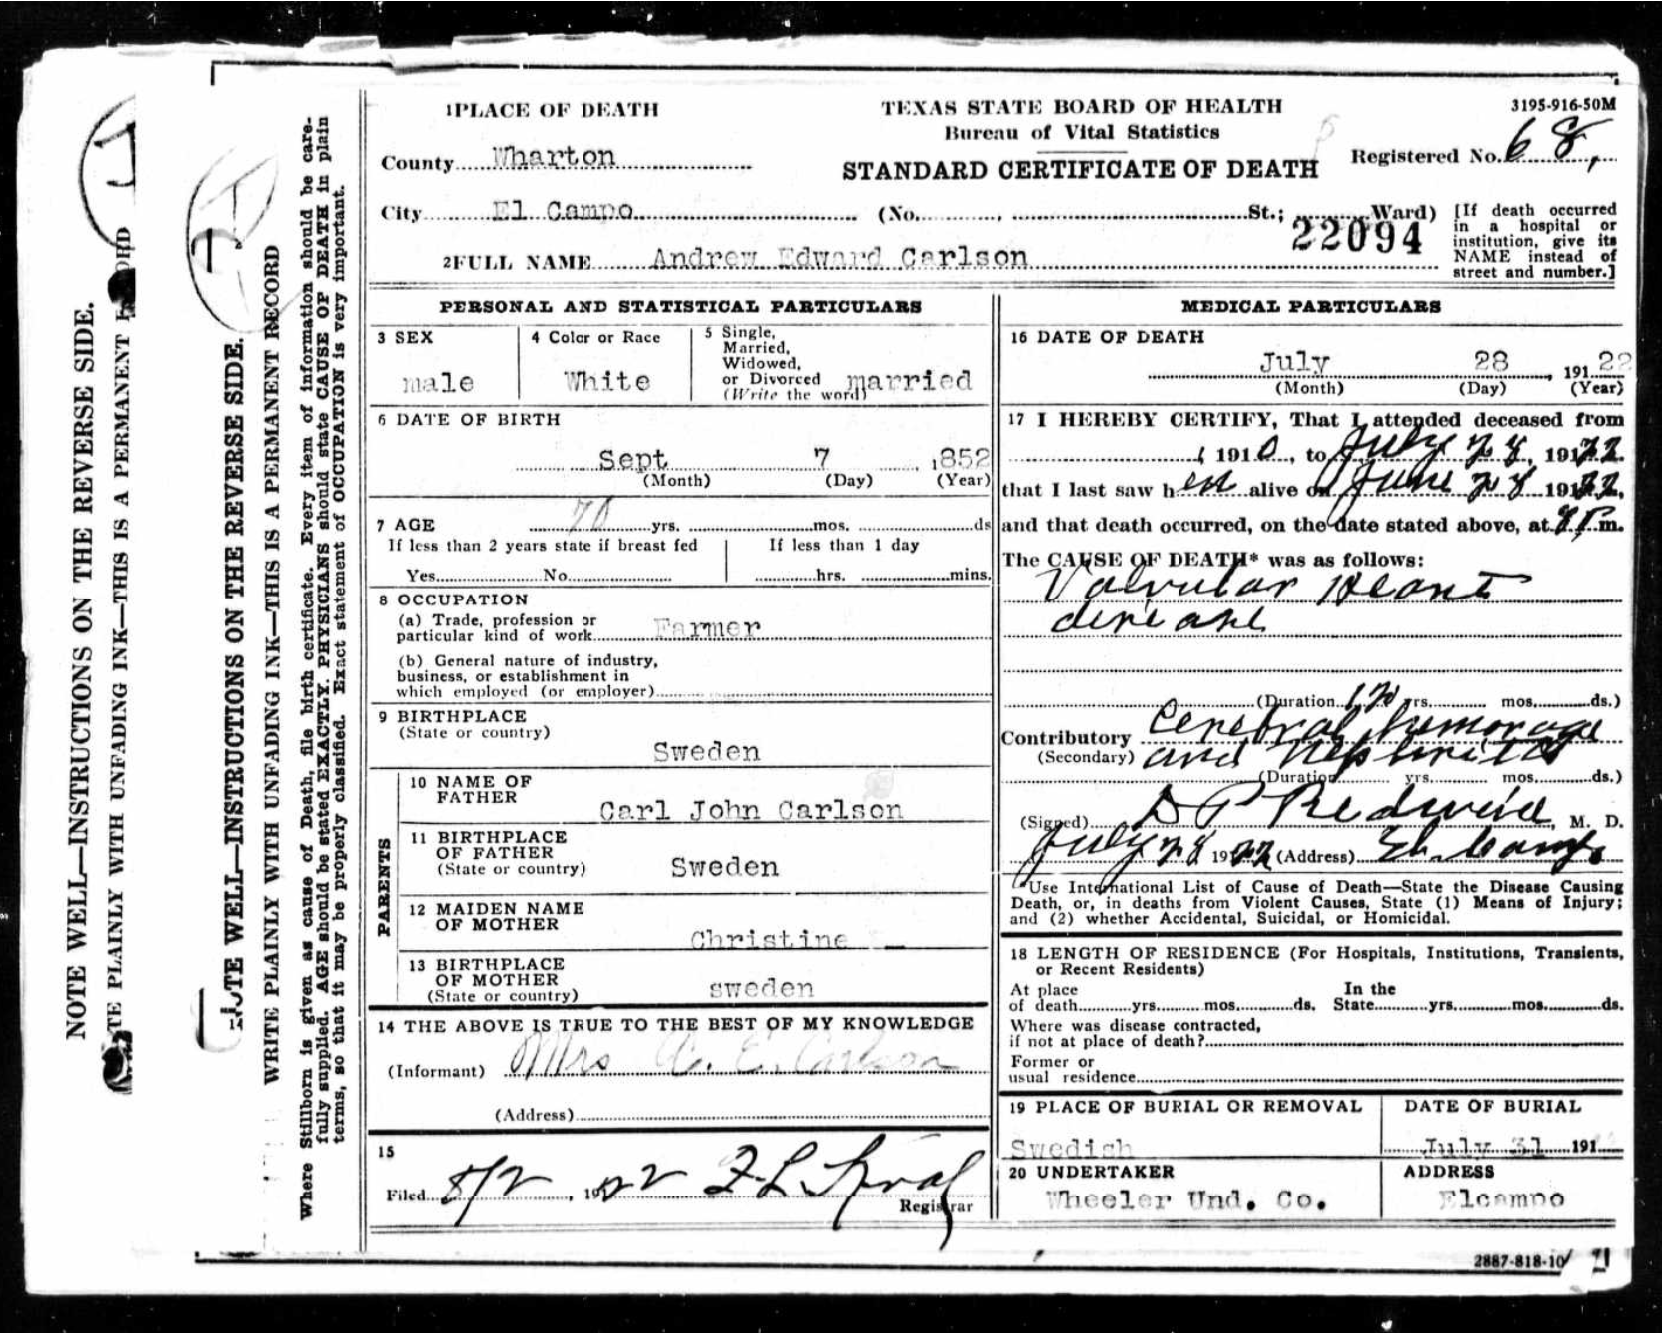 NOTE WELL—INSTRUCTIONS ON THE REVERSE SIDE.
TE PLAINLY WITH UNFADING INK—THIS IS A PERMANENT
TE WELL—INSTRUCTIONS ON THE REVERSE SIDE.
WRITE PLAINLY WITH UNFADING INK—THIS IS A PERMANENT RECORD
Where Stillborn is given as cause of Death, file birth certificate. Every item of information should be care-
fully supplied. AGE should be stated EXACTLY. PHYSICIANS should state CAUSE OF DEATH in plain
terms, so that it may be properly classified. Exact statement of OCCUPATION is very important.
1 PLACE OF DEATH
County Wharton
City El Campo
TEXAS STATE BOARD OF HEALTH
Bureau of Vital Statistics
STANDARD CERTIFICATE OF DEATH
3195-916-50M
Registered No. 68,
(No. , St.; Ward)
22094
[If death occurred
in a hospital or
institution, give its
NAME instead of
street and number.]
2 FULL NAME Andrew Edward Carlson
PERSONAL AND STATISTICAL PARTICULARS
3 SEX
male
4 Color or Race
White
5 Single,
Married,
Widowed,
or Divorced married
(Write the word)
6 DATE OF BIRTH
Sept 7, 1852
(Month) (Day) (Year)
7 AGE 70 yrs. mos. ds
If less than 2 years state if breast fed
Yes No
If less than 1 day
hrs. mins.
8 OCCUPATION
(a) Trade, profession or
particular kind of work Farmer
(b) General nature of industry,
business, or establishment in
which employed (or employer)
9 BIRTHPLACE
(State or country)
Sweden
PARENTS
10 NAME OF
FATHER
Carl John Carlson
11 BIRTHPLACE
OF FATHER
(State or country)
Sweden
12 MAIDEN NAME
OF MOTHER
Christine
13 BIRTHPLACE
OF MOTHER
(State or country)
sweden
14 THE ABOVE IS TRUE TO THE BEST OF MY KNOWLEDGE
(Informant) Mrs A. E. Carlson
(Address)
15
Filed 8/2, 1922 F L
Registrar
MEDICAL PARTICULARS
16 DATE OF DEATH
July 28, 191 22
(Month) (Day) (Year)
17 I HEREBY CERTIFY, That I attended deceased from
1910, to July 28, 1922.
that I last saw h alive on June 28 1922,
and that death occurred, on the date stated above, at m.
The CAUSE OF DEATH* was as follows:
Valvular Heart
disease
(Duration yrs. mos. ds.)
Contributory Cerebral hemorage
(Secondary) and Nephritis
(Duration yrs. mos. ds.)
(Signed) D P Redwine, M. D.
July 28 1922 (Address) El Campo
*Use International List of Cause of Death—State the Disease Causing
Death, or, in deaths from Violent Causes, State (1) Means of Injury;
and (2) whether Accidental, Suicidal, or Homicidal.
18 LENGTH OF RESIDENCE (For Hospitals, Institutions, Transients,
or Recent Residents)
At place In the
of death yrs. mos. ds. State yrs. mos. ds.
Where was disease contracted,
if not at place of death?
Former or
usual residence
19 PLACE OF BURIAL OR REMOVAL
Swedish
DATE OF BURIAL
July 31 191
20 UNDERTAKER
Wheeler Und. Co.
ADDRESS
Elcampo
2887-818-10